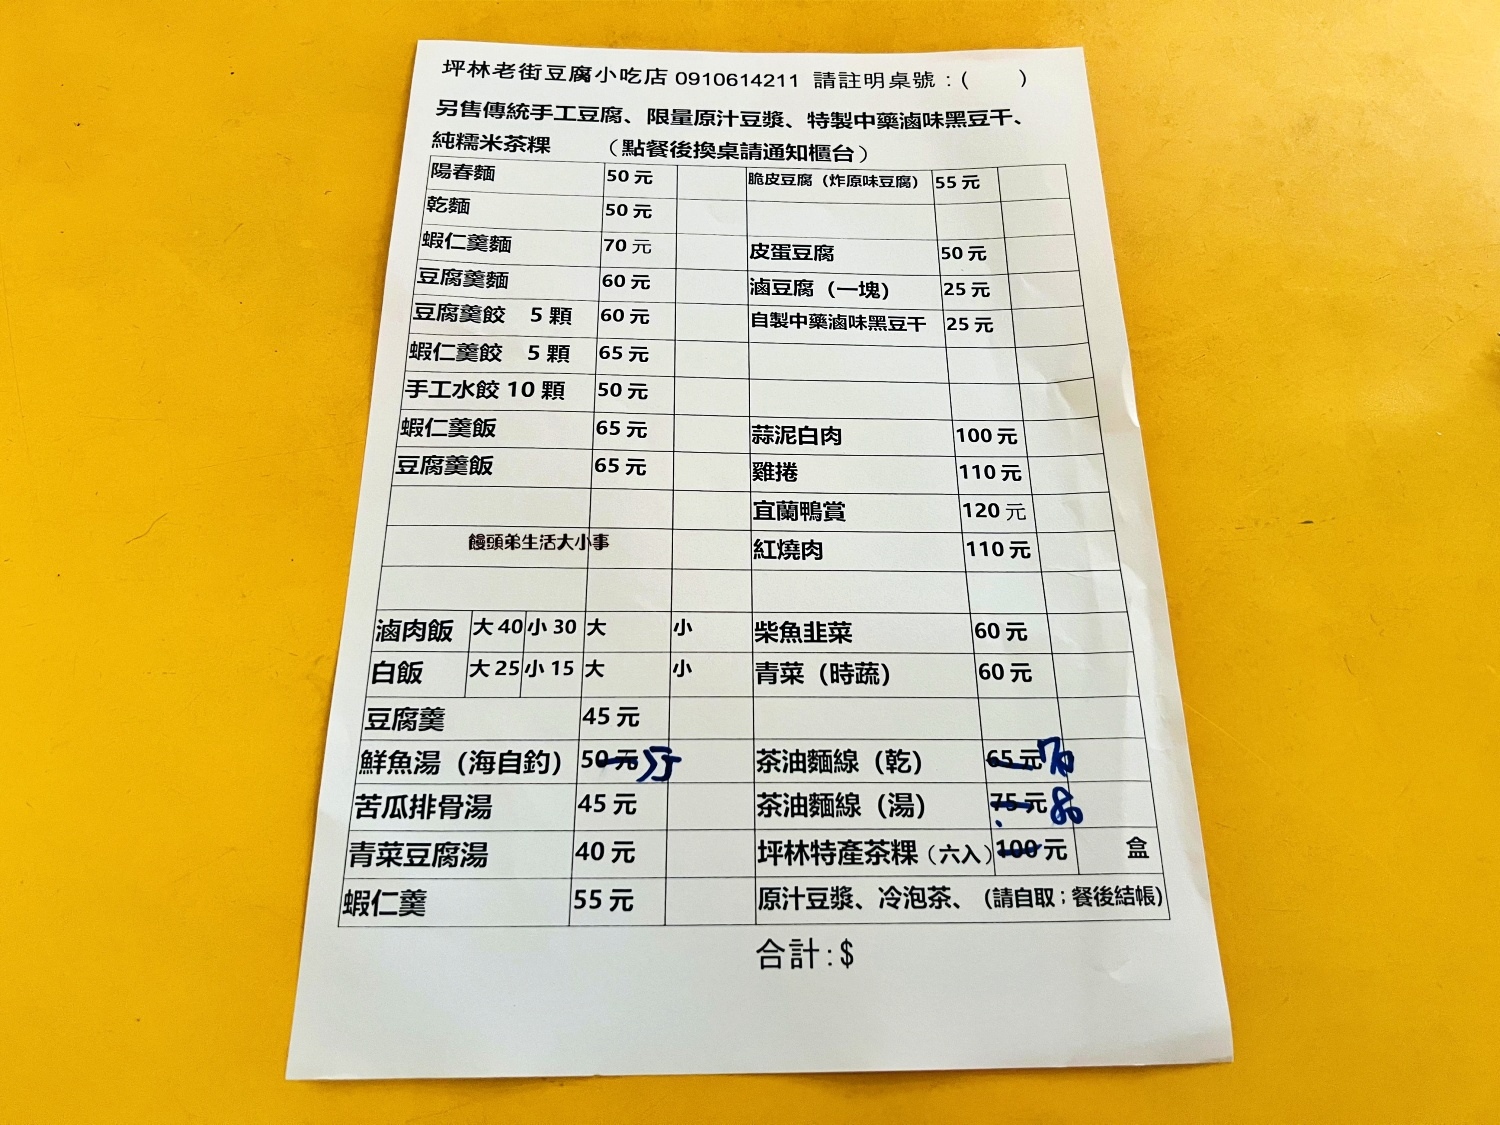 坪林老街豆腐小吃店 0910614211 請註明桌號：(　　)
另售傳統手工豆腐、限量原汁豆漿、特製中藥滷味黑豆干、
純糯米茶粿　（點餐後換桌請通知櫃台）
陽春麵 50 元 脆皮豆腐（炸原味豆腐） 55 元
乾麵 50 元
蝦仁羹麵 70 元 皮蛋豆腐 50 元
豆腐羹麵 60 元 滷豆腐（一塊） 25 元
豆腐羹餃 5 顆 60 元 自製中藥滷味黑豆干 25 元
蝦仁羹餃 5 顆 65 元
手工水餃 10 顆 50 元
蝦仁羹飯 65 元 蒜泥白肉 100 元
豆腐羹飯 65 元 雞捲 110 元
宜蘭鴨賞 120 元
饅頭弟生活大小事 紅燒肉 110 元
滷肉飯 大 40 小 30 大 小 柴魚韭菜 60 元
白飯 大 25 小 15 大 小 青菜（時蔬） 60 元
豆腐羹 45 元
鮮魚湯（海自釣） 50 元 茶油麵線（乾） 65 元 70
苦瓜排骨湯 45 元 茶油麵線（湯） 75 元 80
青菜豆腐湯 40 元 坪林特產茶粿（六入） 100 元 盒
蝦仁羹 55 元 原汁豆漿、冷泡茶、（請自取；餐後結帳）
合計：$